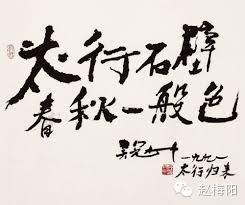 太行石壁
春秋一般色
吴冠中
一九九一
太行归来
赵梅阳